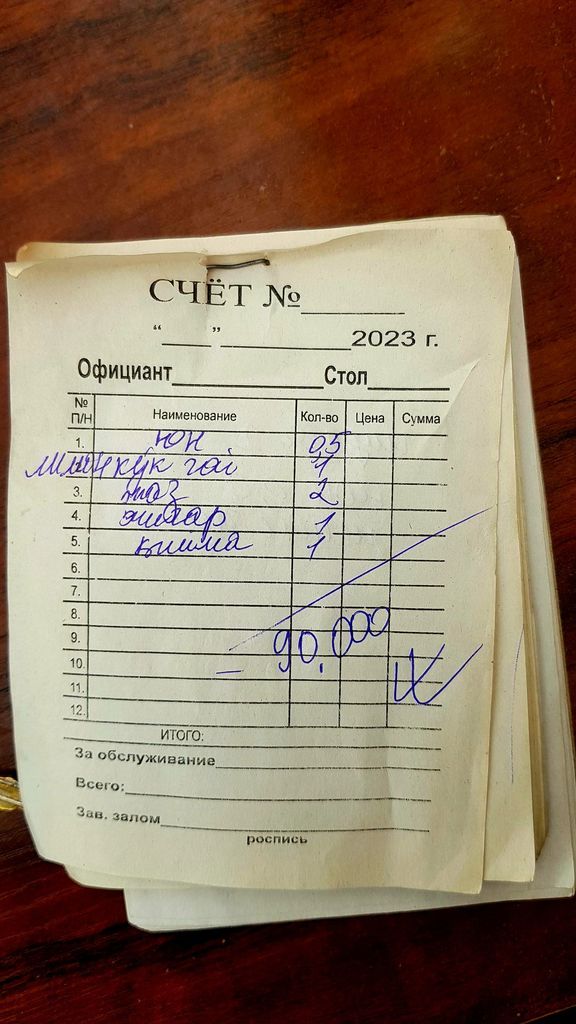 СЧЁТ №
“ ” 2023 г.
Официант Стол
№ П/Н Наименование Кол-во Цена Сумма
1. нон 0,5
2. кўк чой 1
3. 2
4. 1
5. қийма 1
6.
7.
8.
9. 90.000
10.
11.
12.
ИТОГО:
За обслуживание
Всего:
Зав. залом
роспись